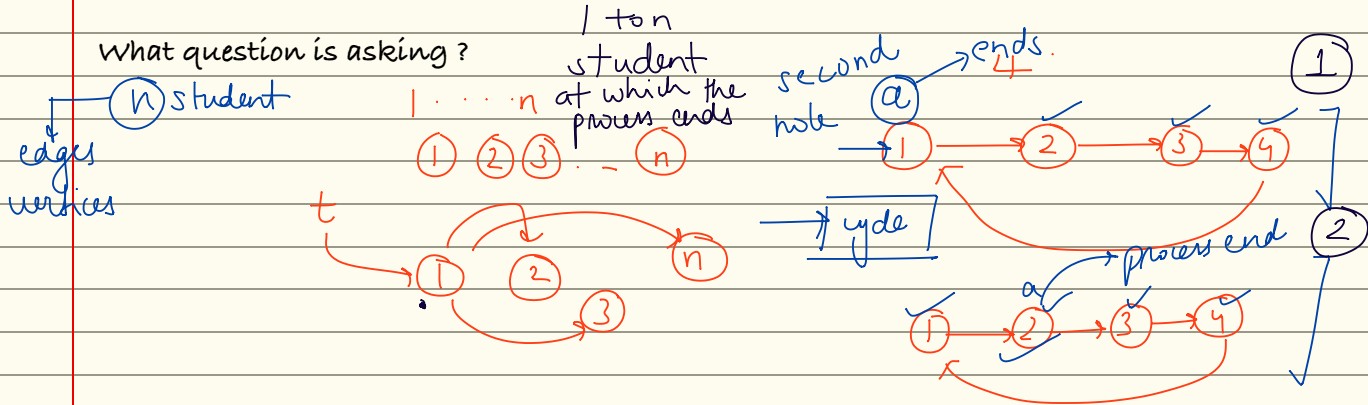 What question is asking ?
n student
edges
vertices
1 ton
student
at which the
process ends
1 ..... n
1 2 3 . _ n
t
1 2 n
3
second
hole
a ends
4
1
1 2 3 4
cycle
2
process end
a
1 2 3 4